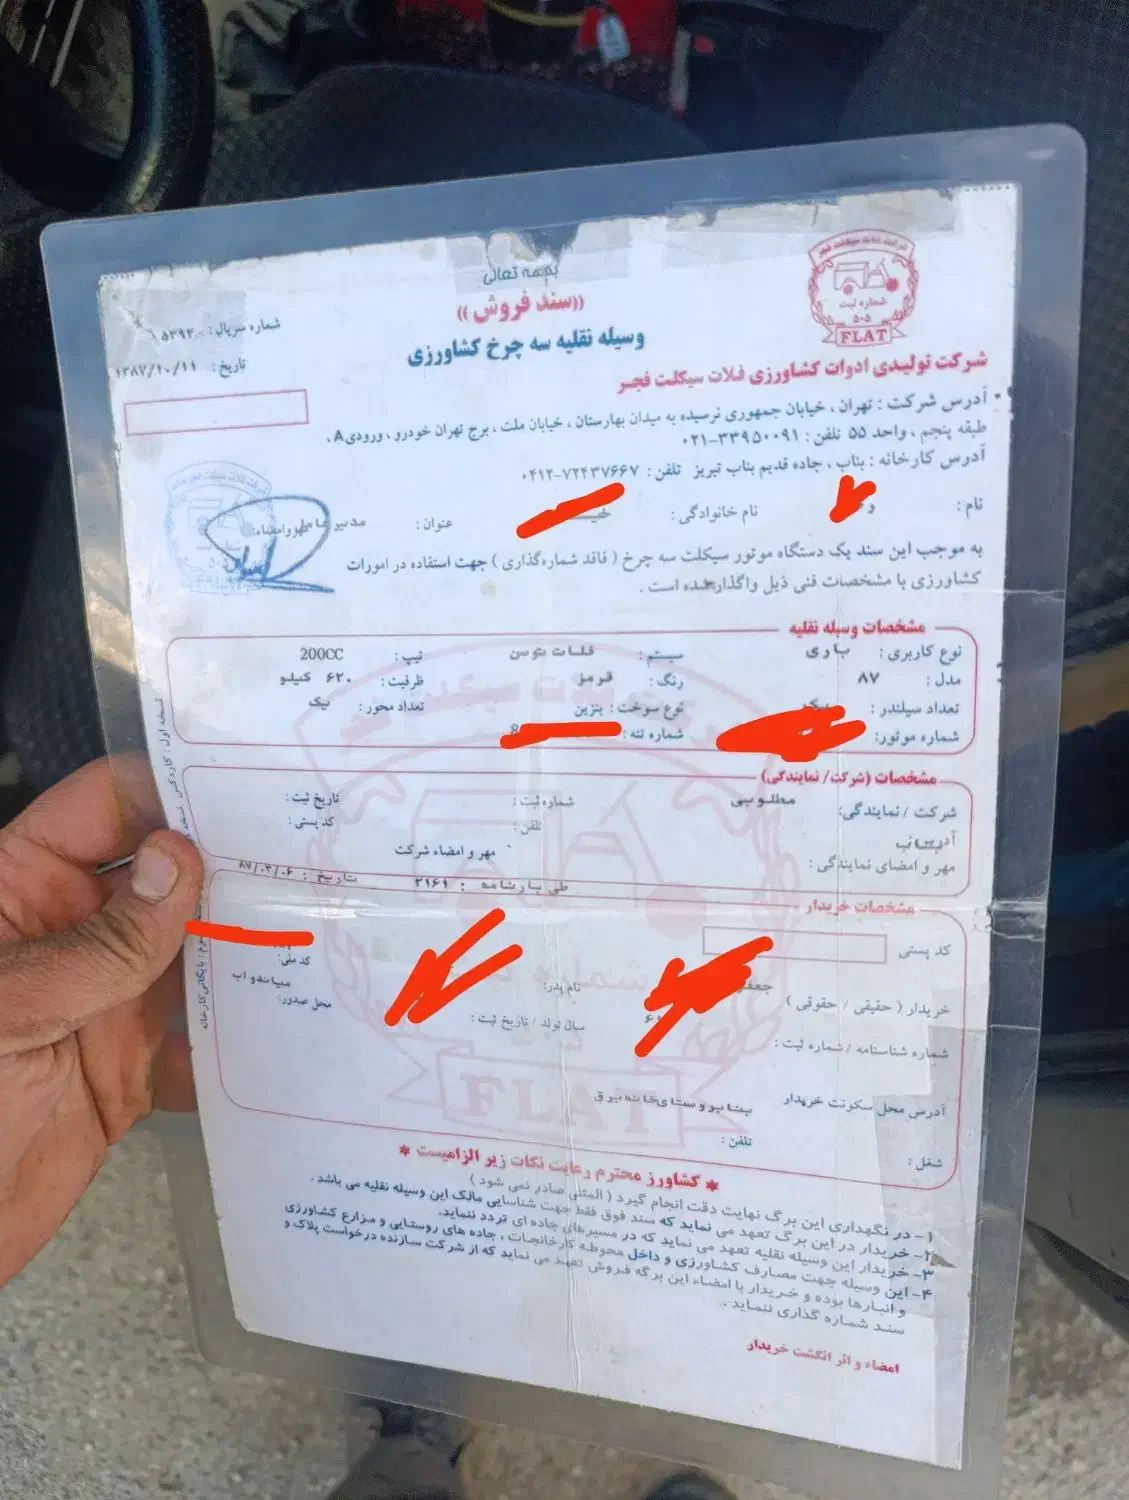 بسمه تعالی
((سند فروش))
وسیله نقلیه سه چرخ کشاورزی
شماره سریال :
تاریخ : ۱۳۸۷/۱۰/۱۱
شرکت فلات سیکلت فجر
شماره ثبت
۵۰۵
FLAT
شرکت تولیدی ادوات کشاورزی فلات سیکلت فجر
آدرس شرکت : تهران ، خیابان جمهوری نرسیده به میدان بهارستان ، خیابان ملت ، برج تهران خودرو ، ورودی A ،
طبقه پنجم ، واحد ۵۵ تلفن : ۳۳۹۵۰۰۹۱-۰۲۱
آدرس کارخانه : بناب ، جاده قدیم بناب تبریز تلفن : ۷۲۴۳۷۶۶۷-۰۴۱۲
نام : نام خانوادگی : عنوان : مدیر عامل مهر و امضاء:
به موجب این سند یک دستگاه موتور سیکلت سه چرخ ( فاقد شماره گذاری ) جهت استفاده در امورات
کشاورزی با مشخصات فنی ذیل واگذار شده است .
مشخصات وسیله نقلیه
نوع کاربری : باری سیستم : فلات توسن تیپ : 200CC
مدل : ۸۷ رنگ : قرمز ظرفیت : ۶۲۰ کیلو
تعداد سیلندر : نوع سوخت : بنزین تعداد محور : یک
شماره موتور: شماره تنه :
مشخصات (شرکت/ نمایندگی)
شرکت / نمایندگی: مطلوبی شماره ثبت : تاریخ ثبت :
آدرس بناب تلفن : کد پستی :
مهر و امضای نمایندگی : مهر و امضاء شرکت
طی بارنامه : ۲۱۶۱ تاریخ : ۸۷/۰۳/۰۶
مشخصات خریدار
کد پستی
خریدار ( حقیقی / حقوقی ) نام پدر: کد ملی:
شماره شناسنامه / شماره ثبت : سال تولد / تاریخ ثبت : محل صدور: میاندواب
آدرس محل سکونت خریدار
شغل : تلفن :
FLAT
* کشاورز محترم رعایت نکات زیر الزامیست *
۱- در نگهداری این برگ نهایت دقت انجام گیرد ( المثنی صادر نمی شود )
۲- خریدار در این برگ تعهد می نماید که سند فوق فقط جهت شناسایی مالک این وسیله نقلیه می باشد .
۳- خریدار این وسیله نقلیه تعهد می نماید که در مسیرهای جاده ای تردد ننماید.
۴- این وسیله جهت مصارف کشاورزی و داخل محوطه کارخانجات ، جاده های روستایی و مزارع کشاورزی
و انبارها بوده و خریدار با امضاء این برگه فروش تعهد می نماید که از شرکت سازنده درخواست پلاک و
سند شماره گذاری ننماید .
امضاء و اثر انگشت خریدار